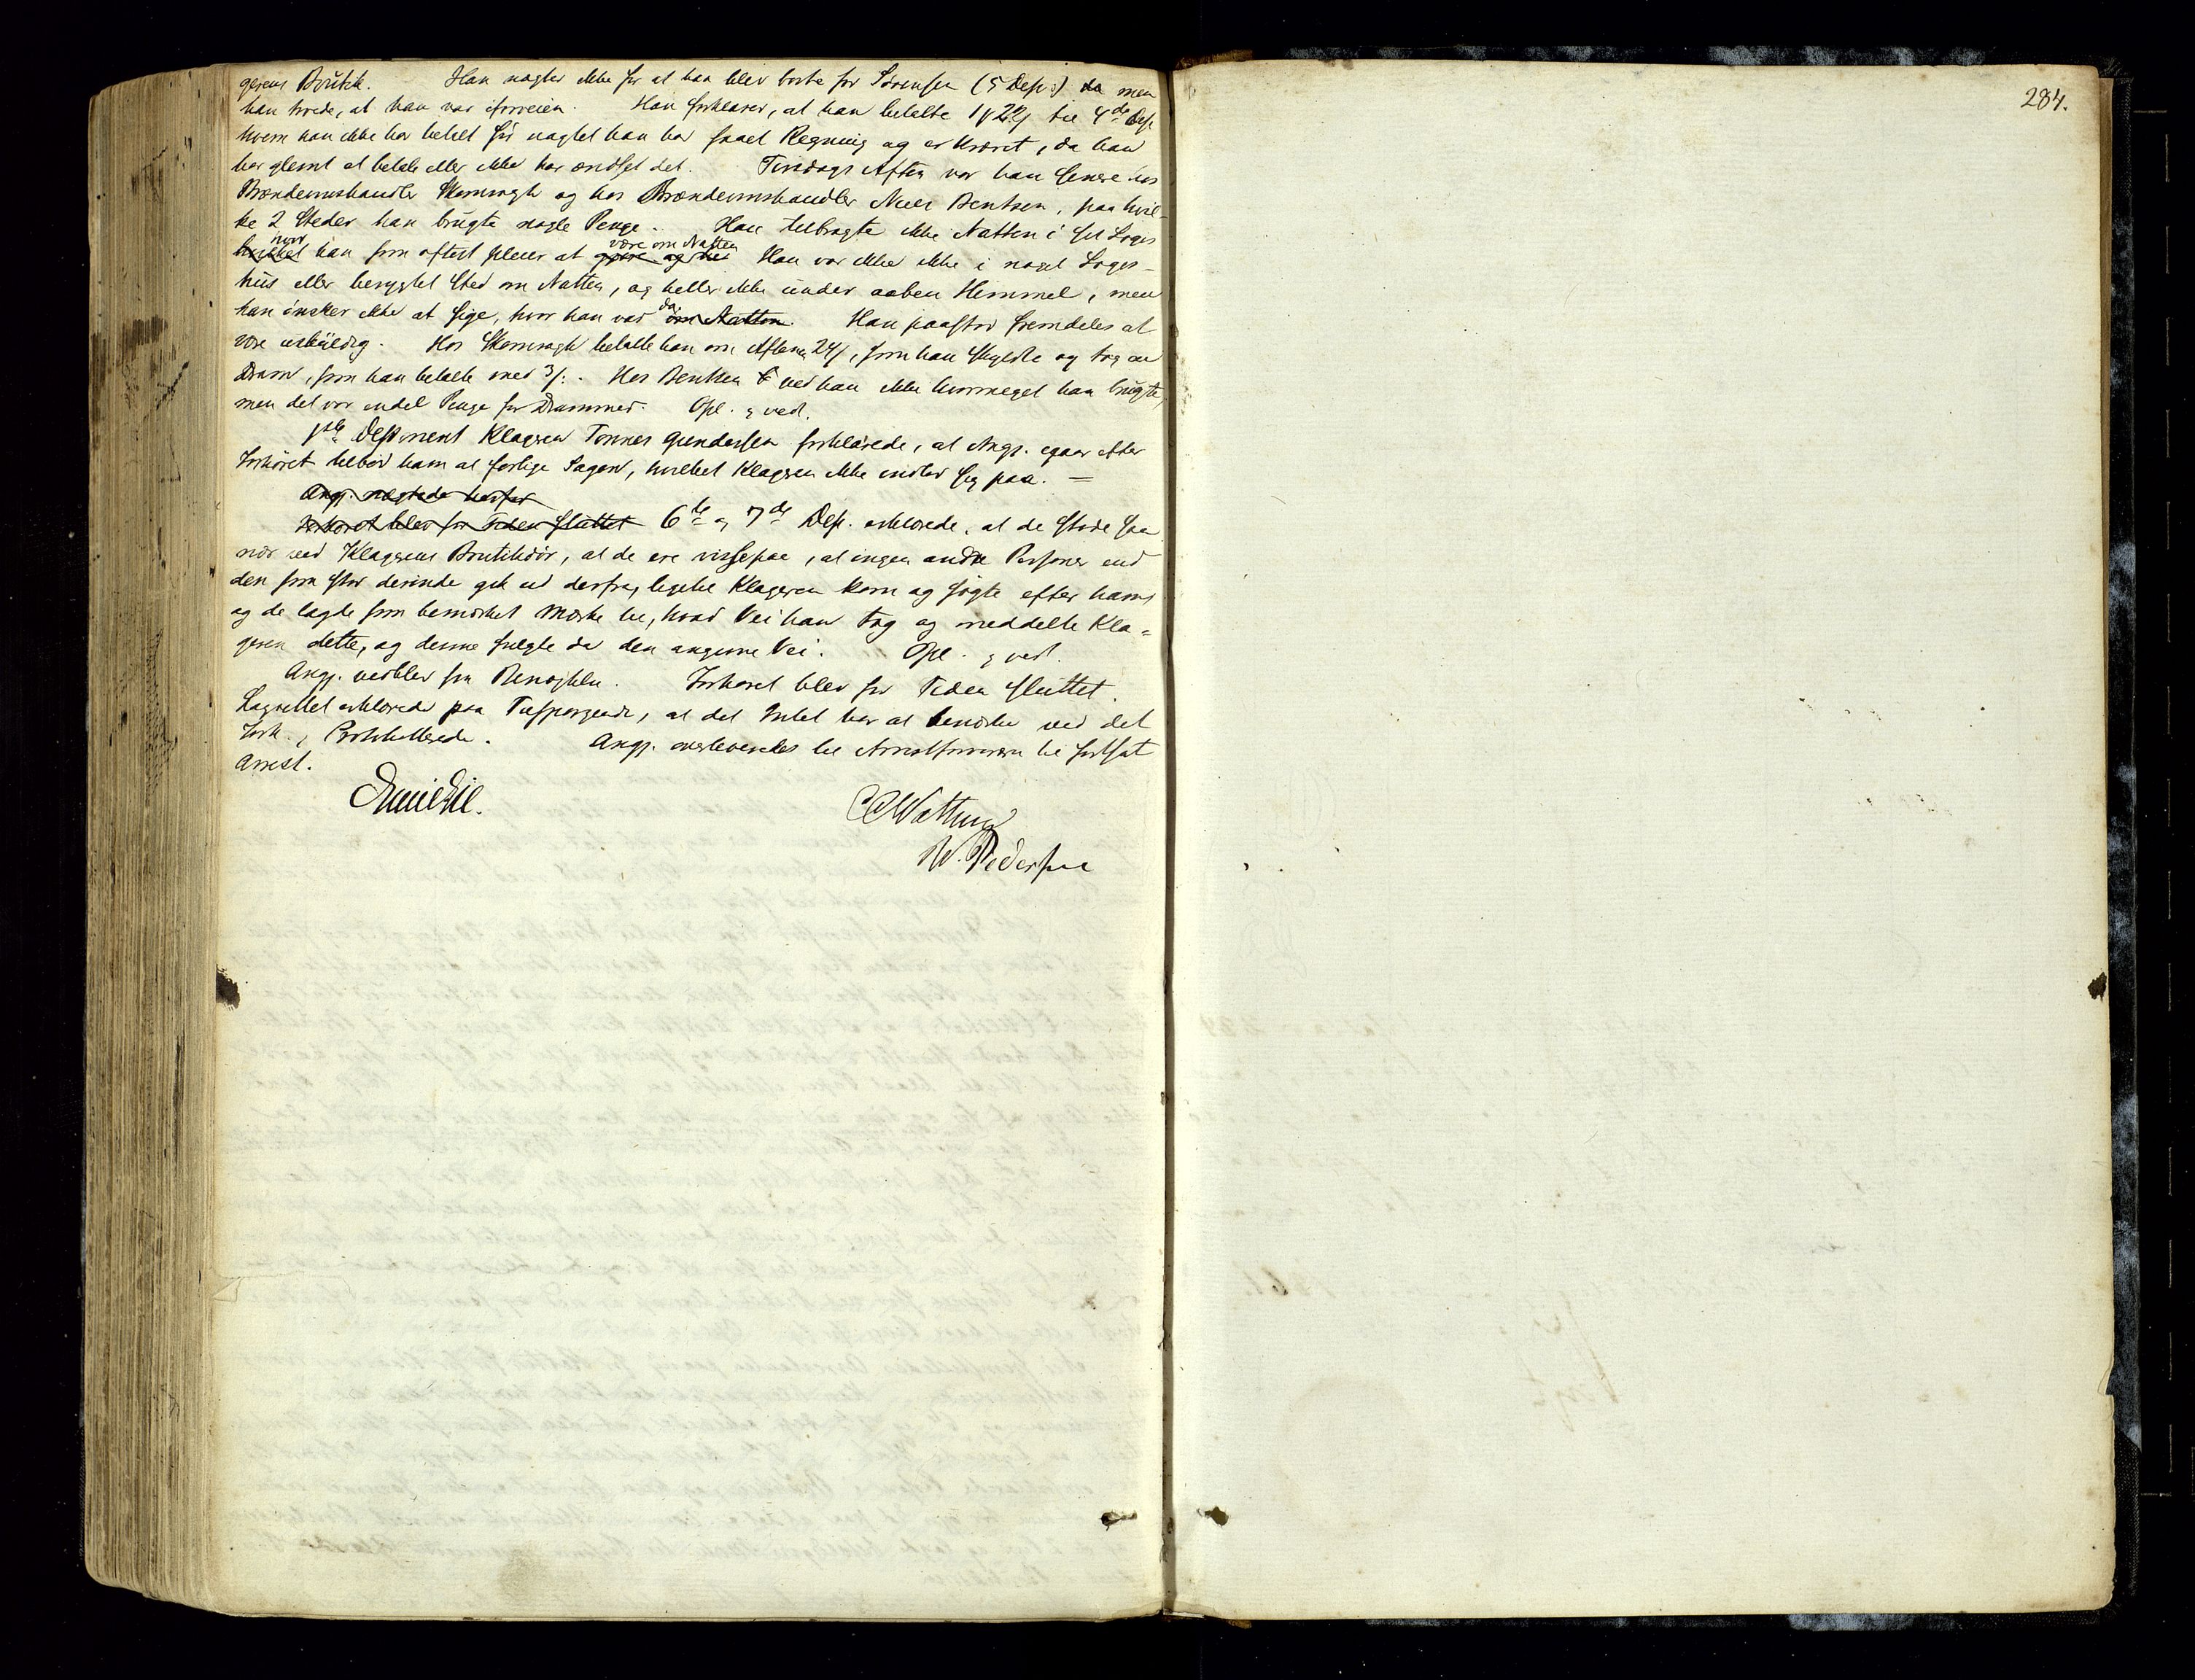 gerens Boutik. Han nægter ikke for at han blev borte for Sørensen (5 Dep:) da men
han troede, at han var iforveien. Han forklarer, at han betalte 1 22 til 4de Dep
hvem han ikke har betalt før uagtet han har faaet Regning og er krævet, da han
har glemt at betale eller ikke har ændset det. Tirsdags Aften var han senere hos
Brændeviinshandler og hos Brændeviinshandler Niels Bentsen, paa hvil-
ke 2 Steder han brugte nogle Penge. Han tilbragte ikke Natten i sit Logis
hvilket hvor han som oftest pleier at gjøre og har være om Natten Han var ikke ikke i noget Logis-
huus eller berygtet Sted om Natten, og heller ikke under aaben Himmel, men
han ønsker ikke at sige, hvor han var da om Natten. Han paastod fremdeles at
være uskyldig. Hos betalte han om Aftenen 24, som han skyldte og tog en
Dram, som han betalte med 3. Hos Bentsen ved han ikke hvormeget han brugte,
men det var endel Penge for Drammer. Opl. & ved.
1ste Deponent Klageren Tønnes Gundersen forklarede, at Ang. igaar efter
Forhøret tilbød ham at forlige Sagen, hvilket Klageren ikke indlod sig paa. =
Ang. negtede herfor
Forhøret blev for Tiden sluttet 6te & 7de Dep. erklærede, at de stode saa
nær ved Klagerens Boutikdør, at de ere visse paa, at ingen andre Personer end
den som stod derinde gik ud derfra, ligetil Klageren kom og søgte efter ham,
og de lagde som bemærket Mærke til, hvad Vei han tog og meddelte Kla=
geren dette, og denne fulgte da den angivne Vei. Opl. & ved.
Ang. vedblev sin Benægtelse. Forhøret blev for Tiden sluttet.
Lagrettet erklærede paa Tilspørgende, at det Intet har at bemærke ved det
Forh. Protokollerede. Ang. overleveredes til Arrestforvareren til fortsat
Arrest.
W. Pedersen
284.